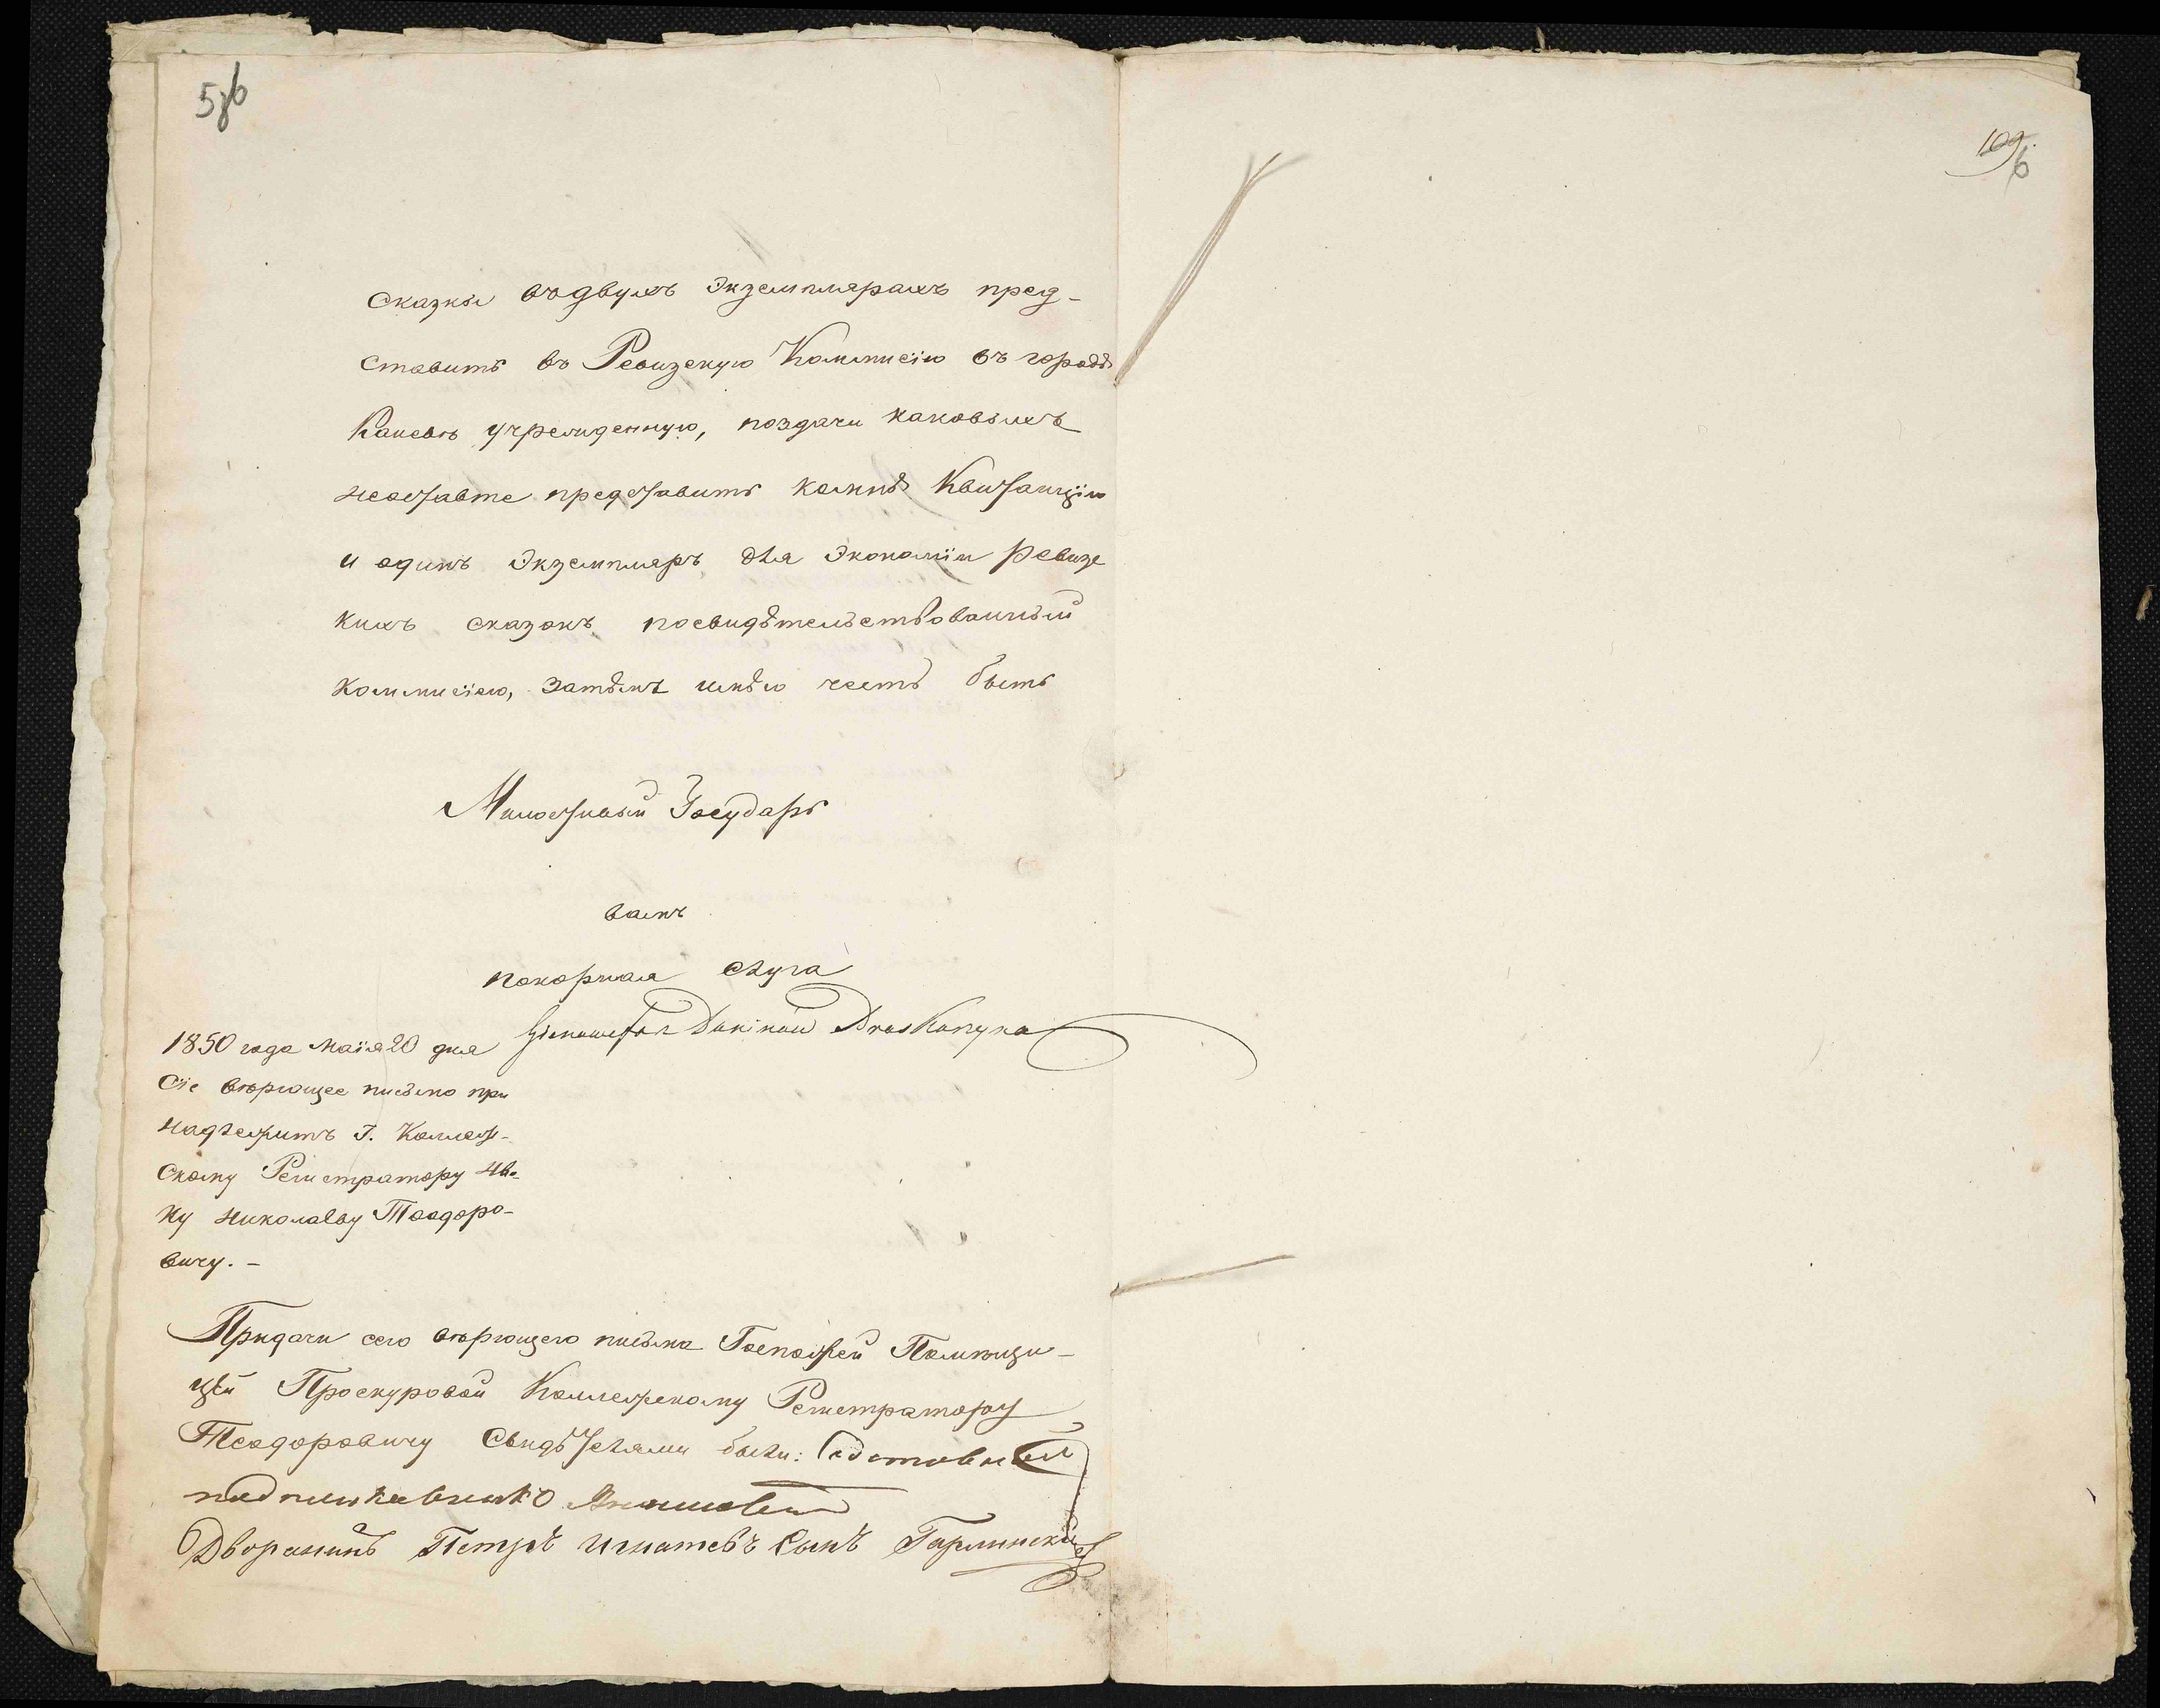 5зб
109.
6
Сказки въ двухъ Экземплярахъ пред-
ставить въ Ревизскую Коммисію въ городѣ
Каневѣ учрежденную, поздачи каковыхъ
неоставте представить комнѣ Квитанцію
и одинъ Экземпляръ для Экономіи Ревизс
кихъ сказокъ посвидѣтельствованный
Коммисіею, затѣмъ имѣю честь быть
Милостивый Государь
вамъ
покорная слуга
Проскурина
1850 года Маія 20 дня
Сіе вѣрющее письмо при
надлежитъ Г. Коллеж-
скому Регистратору
Николаеву Теодоро-
вичу. -
Придачи сего вѣрющего письма Госпожей Помѣщи-
цей Проскуровой Коллежскому Регистратору
Теодоровичу Свидѣтелями были:
Дворянинъ Петръ Игнатевъ Сынъ Гарлинскій